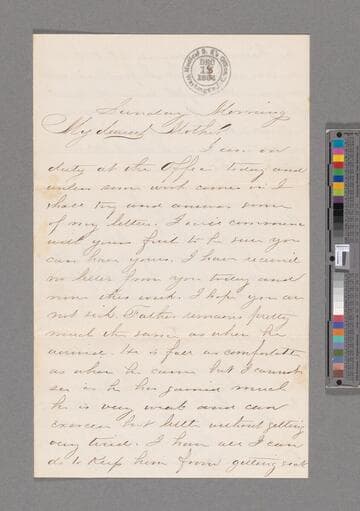 Medical D. R's Office,
DEC
18
1864
Washington
Sunday Morning
My dearest Mother
I am on
duty at the Office today and
unless some work comes in I
shall try and answer some
of my letters. I will commence
with yours first to be sure you
can have yours. I have received
no letter from you today and
none this week. I hope you are
not sick. Father remains pretty
much the same as when he
arrived. He is full as comfortable
as when he came but I cannot
see as he has gained much
he is very weak and can
exercise but little without getting
very tired. I have all I can
do to keep him from getting sick